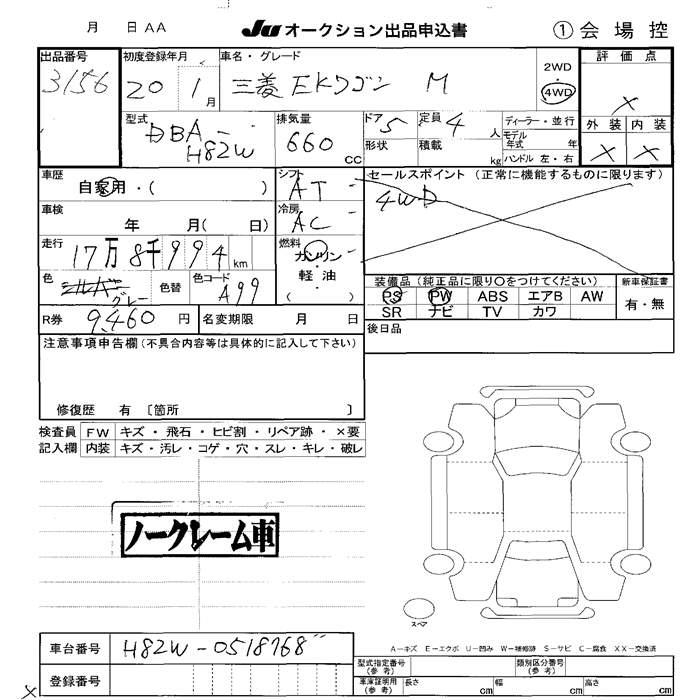 月 日 AA JU オークション出品申込書 ① 会場控
出品番号 初度登録年月 車名・グレード 2WD 評価点
3156 20 1月 三菱 EKワゴン M 4WD
×
型式 排気量 ドア 定員 ディーラー・並行 外装 内装
DBA- 660 cc 5 4人 モデル年式 年
H82W 形状 積載 kg ハンドル 左・右 × ×
車歴 シフト セールスポイント (正常に機能するものに限ります)
自家用・( ) AT 4WD
車検 冷房
年 月( 日) AC
走行 燃料
17万8千994km ガソリン・軽油
色 色替 色コード ( )
シルバー グレー A99
装備品 (純正品に限り○をつけてください) 新車保証書
PS PW ABS エアB AW 有・無
SR ナビ TV カワ
R券 9,460円 名変期限 月 日
後日品
注意事項申告欄 (不具合内容等は具体的に記入して下さい)
修復歴 有 〔箇所 〕
検査員 FW キズ・飛石・ヒビ割・リペア跡・×要
記入欄 内装 キズ・汚レ・コゲ・穴・スレ・キレ・破レ
ノークレーム車
スペア
A-キズ E-エクボ U-凹み W-補修跡 S-サビ C-腐食 XX-交換済
車台番号 H82W-0518768
登録番号
型式指定番号(参考) 類別区分番号(参考)
車庫証明用(参考) 長さ cm 幅 cm 高さ cm
×